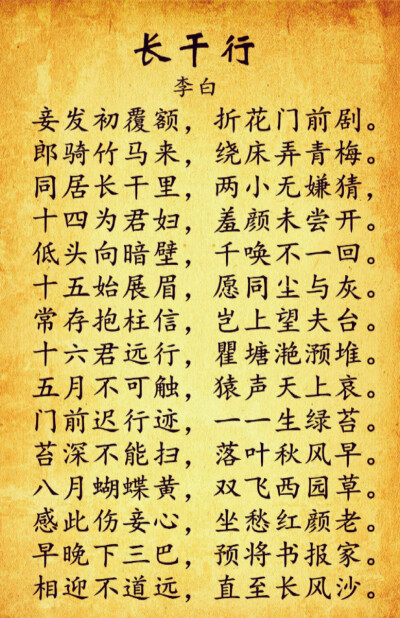 长干行
李白
妾发初覆额，折花门前剧。
郎骑竹马来，绕床弄青梅。
同居长干里，两小无嫌猜，
十四为君妇，羞颜未尝开。
低头向暗壁，千唤不一回。
十五始展眉，愿同尘与灰。
常存抱柱信，岂上望夫台。
十六君远行，瞿塘滟滪堆。
五月不可触，猿声天上哀。
门前迟行迹，一一生绿苔。
苔深不能扫，落叶秋风早。
八月蝴蝶黄，双飞西园草。
感此伤妾心，坐愁红颜老。
早晚下三巴，预将书报家。
相迎不道远，直至长风沙。